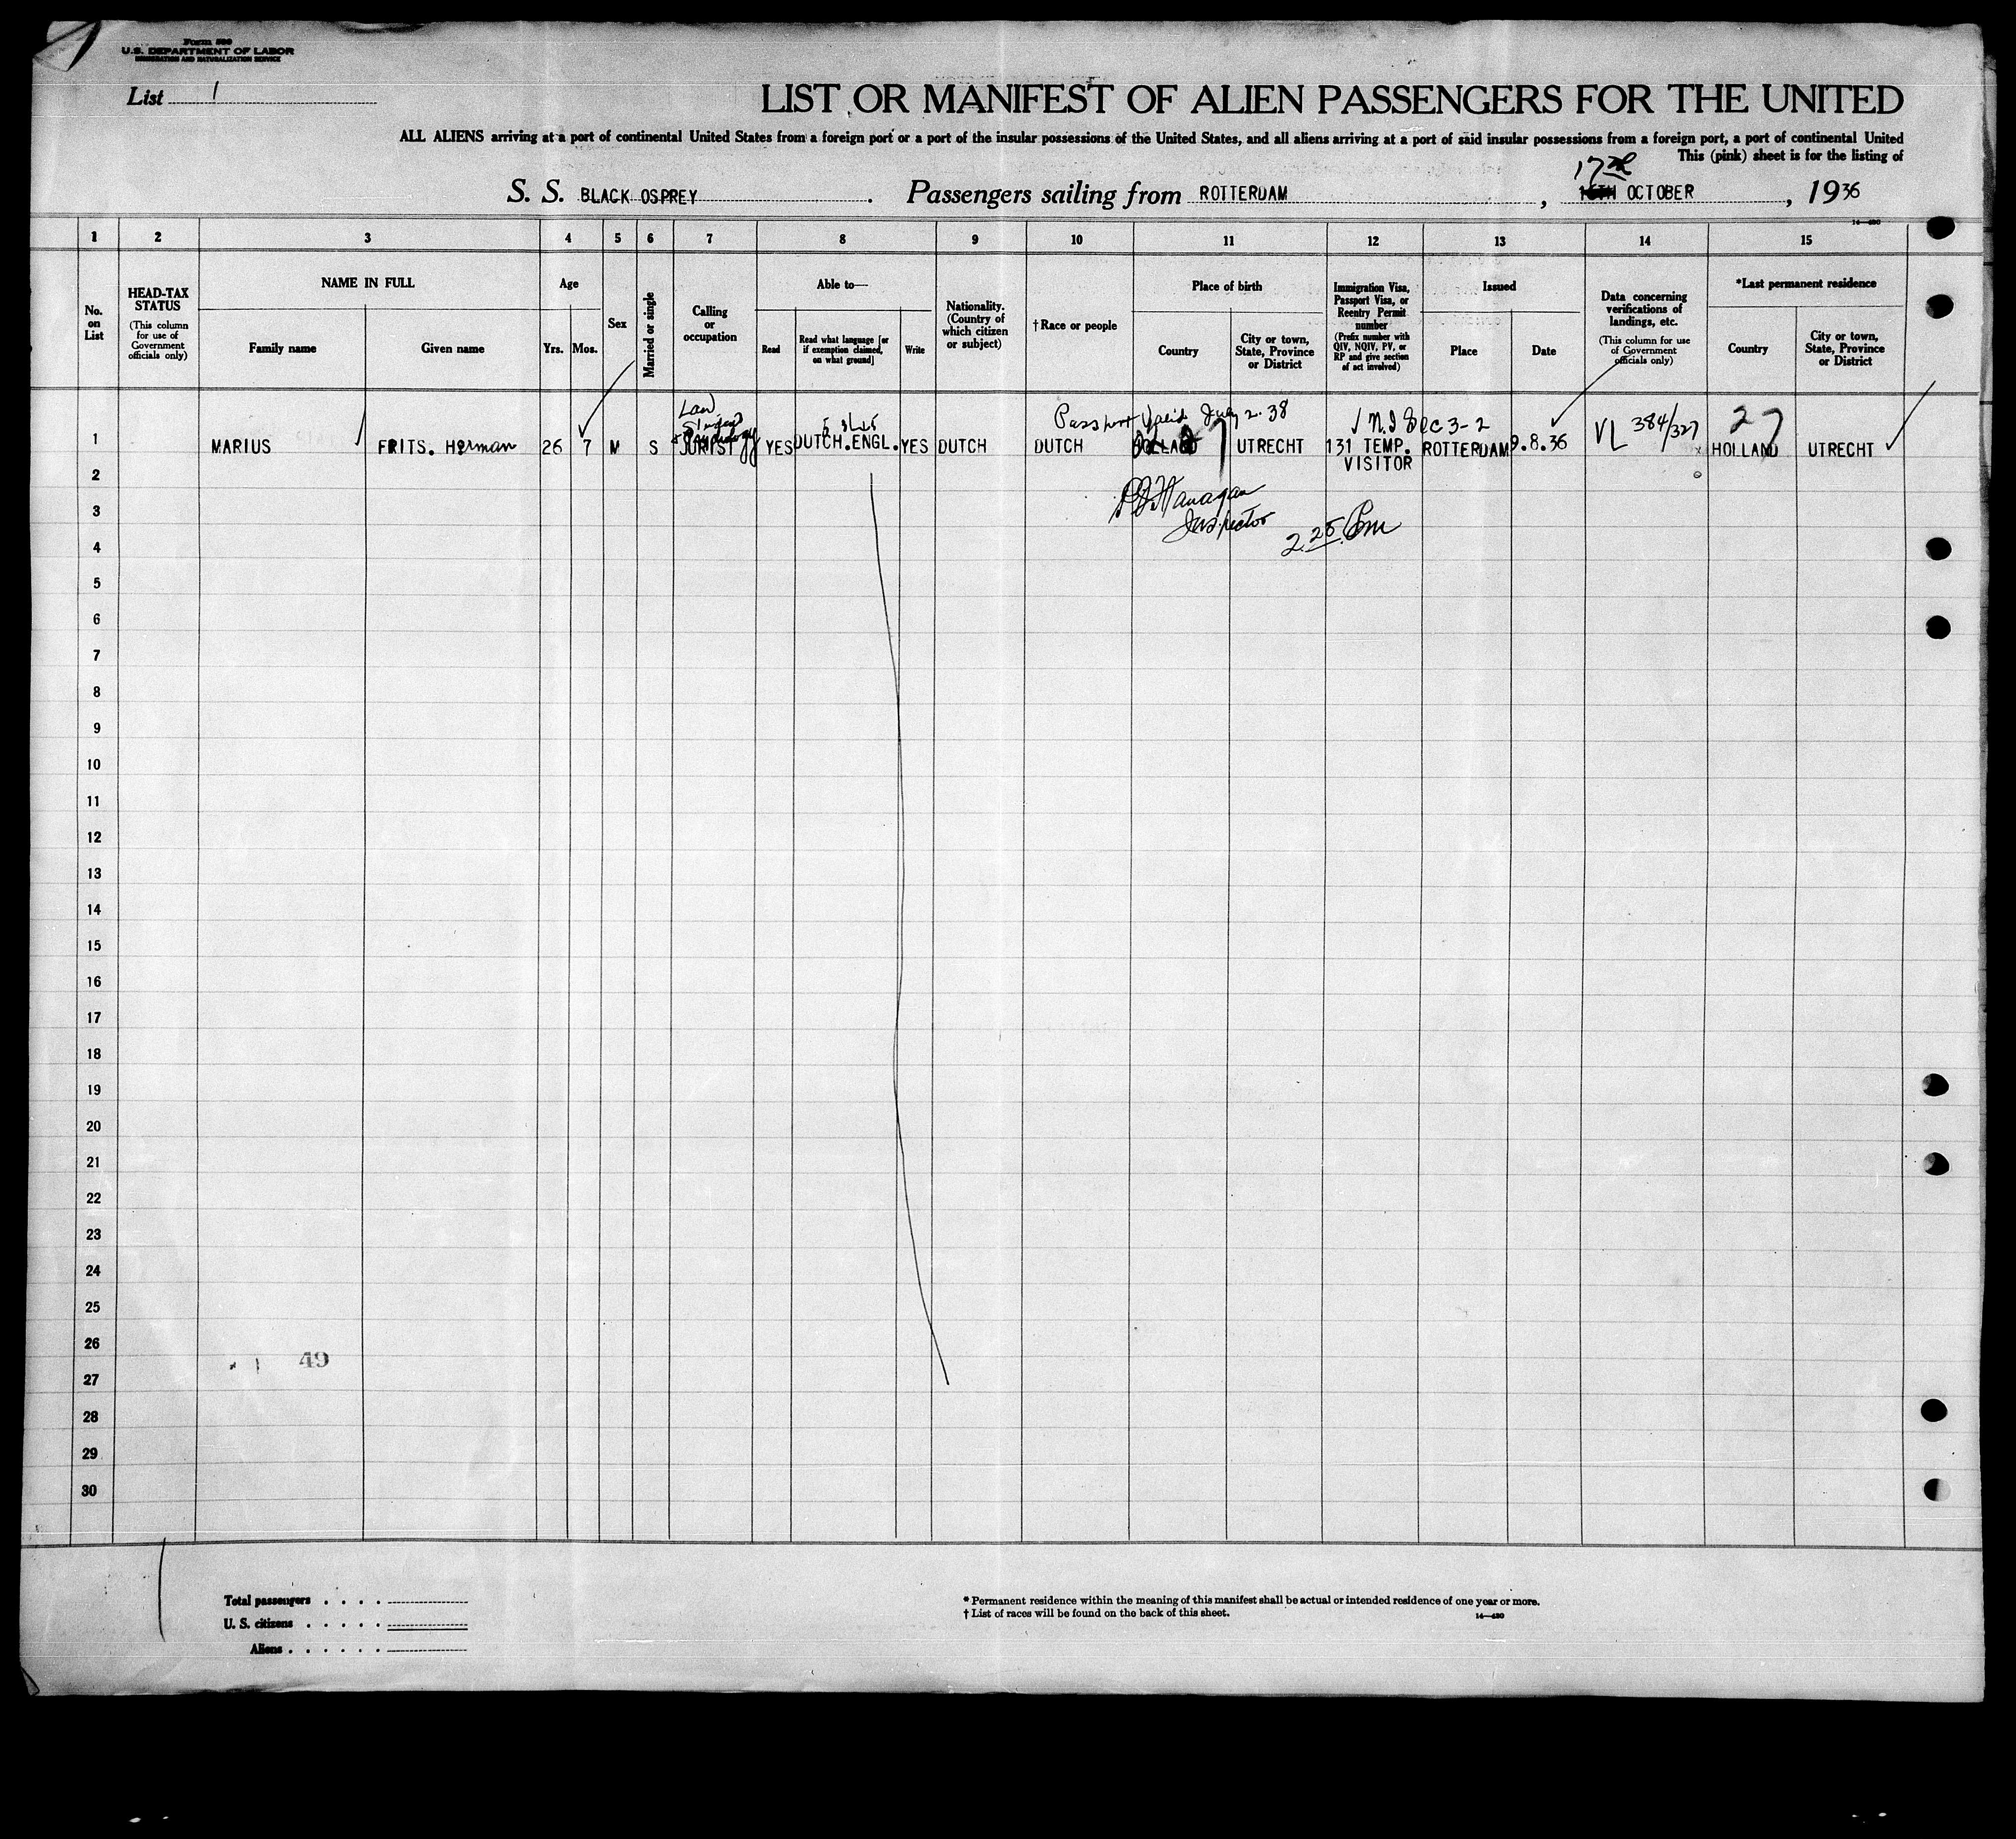 Form 500
U.S. DEPARTMENT OF LABOR
IMMIGRATION AND NATURALIZATION SERVICE
List 1
LIST OR MANIFEST OF ALIEN PASSENGERS FOR THE UNITED
ALL ALIENS arriving at a port of continental United States from a foreign port or a port of the insular possessions of the United States, and all aliens arriving at a port of said insular possessions from a foreign port, a port of continental United
This (pink) sheet is for the listing of
17th
S. S. BLACK OSPREY. Passengers sailing from ROTTERDAM, 16TH OCTOBER, 1936
1 2 3 4 5 6 7 8 9 10 11 12 13 14 15
No. on List
HEAD-TAX STATUS
(This column for use of Government officials only)
NAME IN FULL
Family name
Given name
Age
Yrs.
Mos.
Sex
Married or single
Calling or occupation
Able to—
Read
Read what language [or if exemption claimed, on what ground]
Write
Nationality. (Country of which citizen or subject)
†Race or people
Place of birth
Country
City or town, State, Province or District
Immigration Visa, Passport Visa, or Reentry Permit number
(Prefix number with QIV, NQIV, PV, or RP and give section of act involved)
Issued
Place
Date
Data concerning verifications of landings, etc.
(This column for use of Government officials only)
*Last permanent residence
Country
City or town, State, Province or District
Law
Passport Valid July 2. 38
Sec 3-2
VL 384/327
27
1 MARIUS FRITS. Herman 26 7 M S JURIST YES DUTCH.ENGL. YES DUTCH DUTCH HOLLAND UTRECHT 131 TEMP. ROTTERDAM 9.8.36 HOLLAND UTRECHT
VISITOR
2
3
Flanagan
Inspector
2.25 Pm
4
5
6
7
8
9
10
11
12
13
14
15
16
17
18
19
20
21
22
23
24
25
26
49
27
28
29
30
Total passengers
U. S. citizens
Aliens
* Permanent residence within the meaning of this manifest shall be actual or intended residence of one year or more.
† List of races will be found on the back of this sheet.
14—430